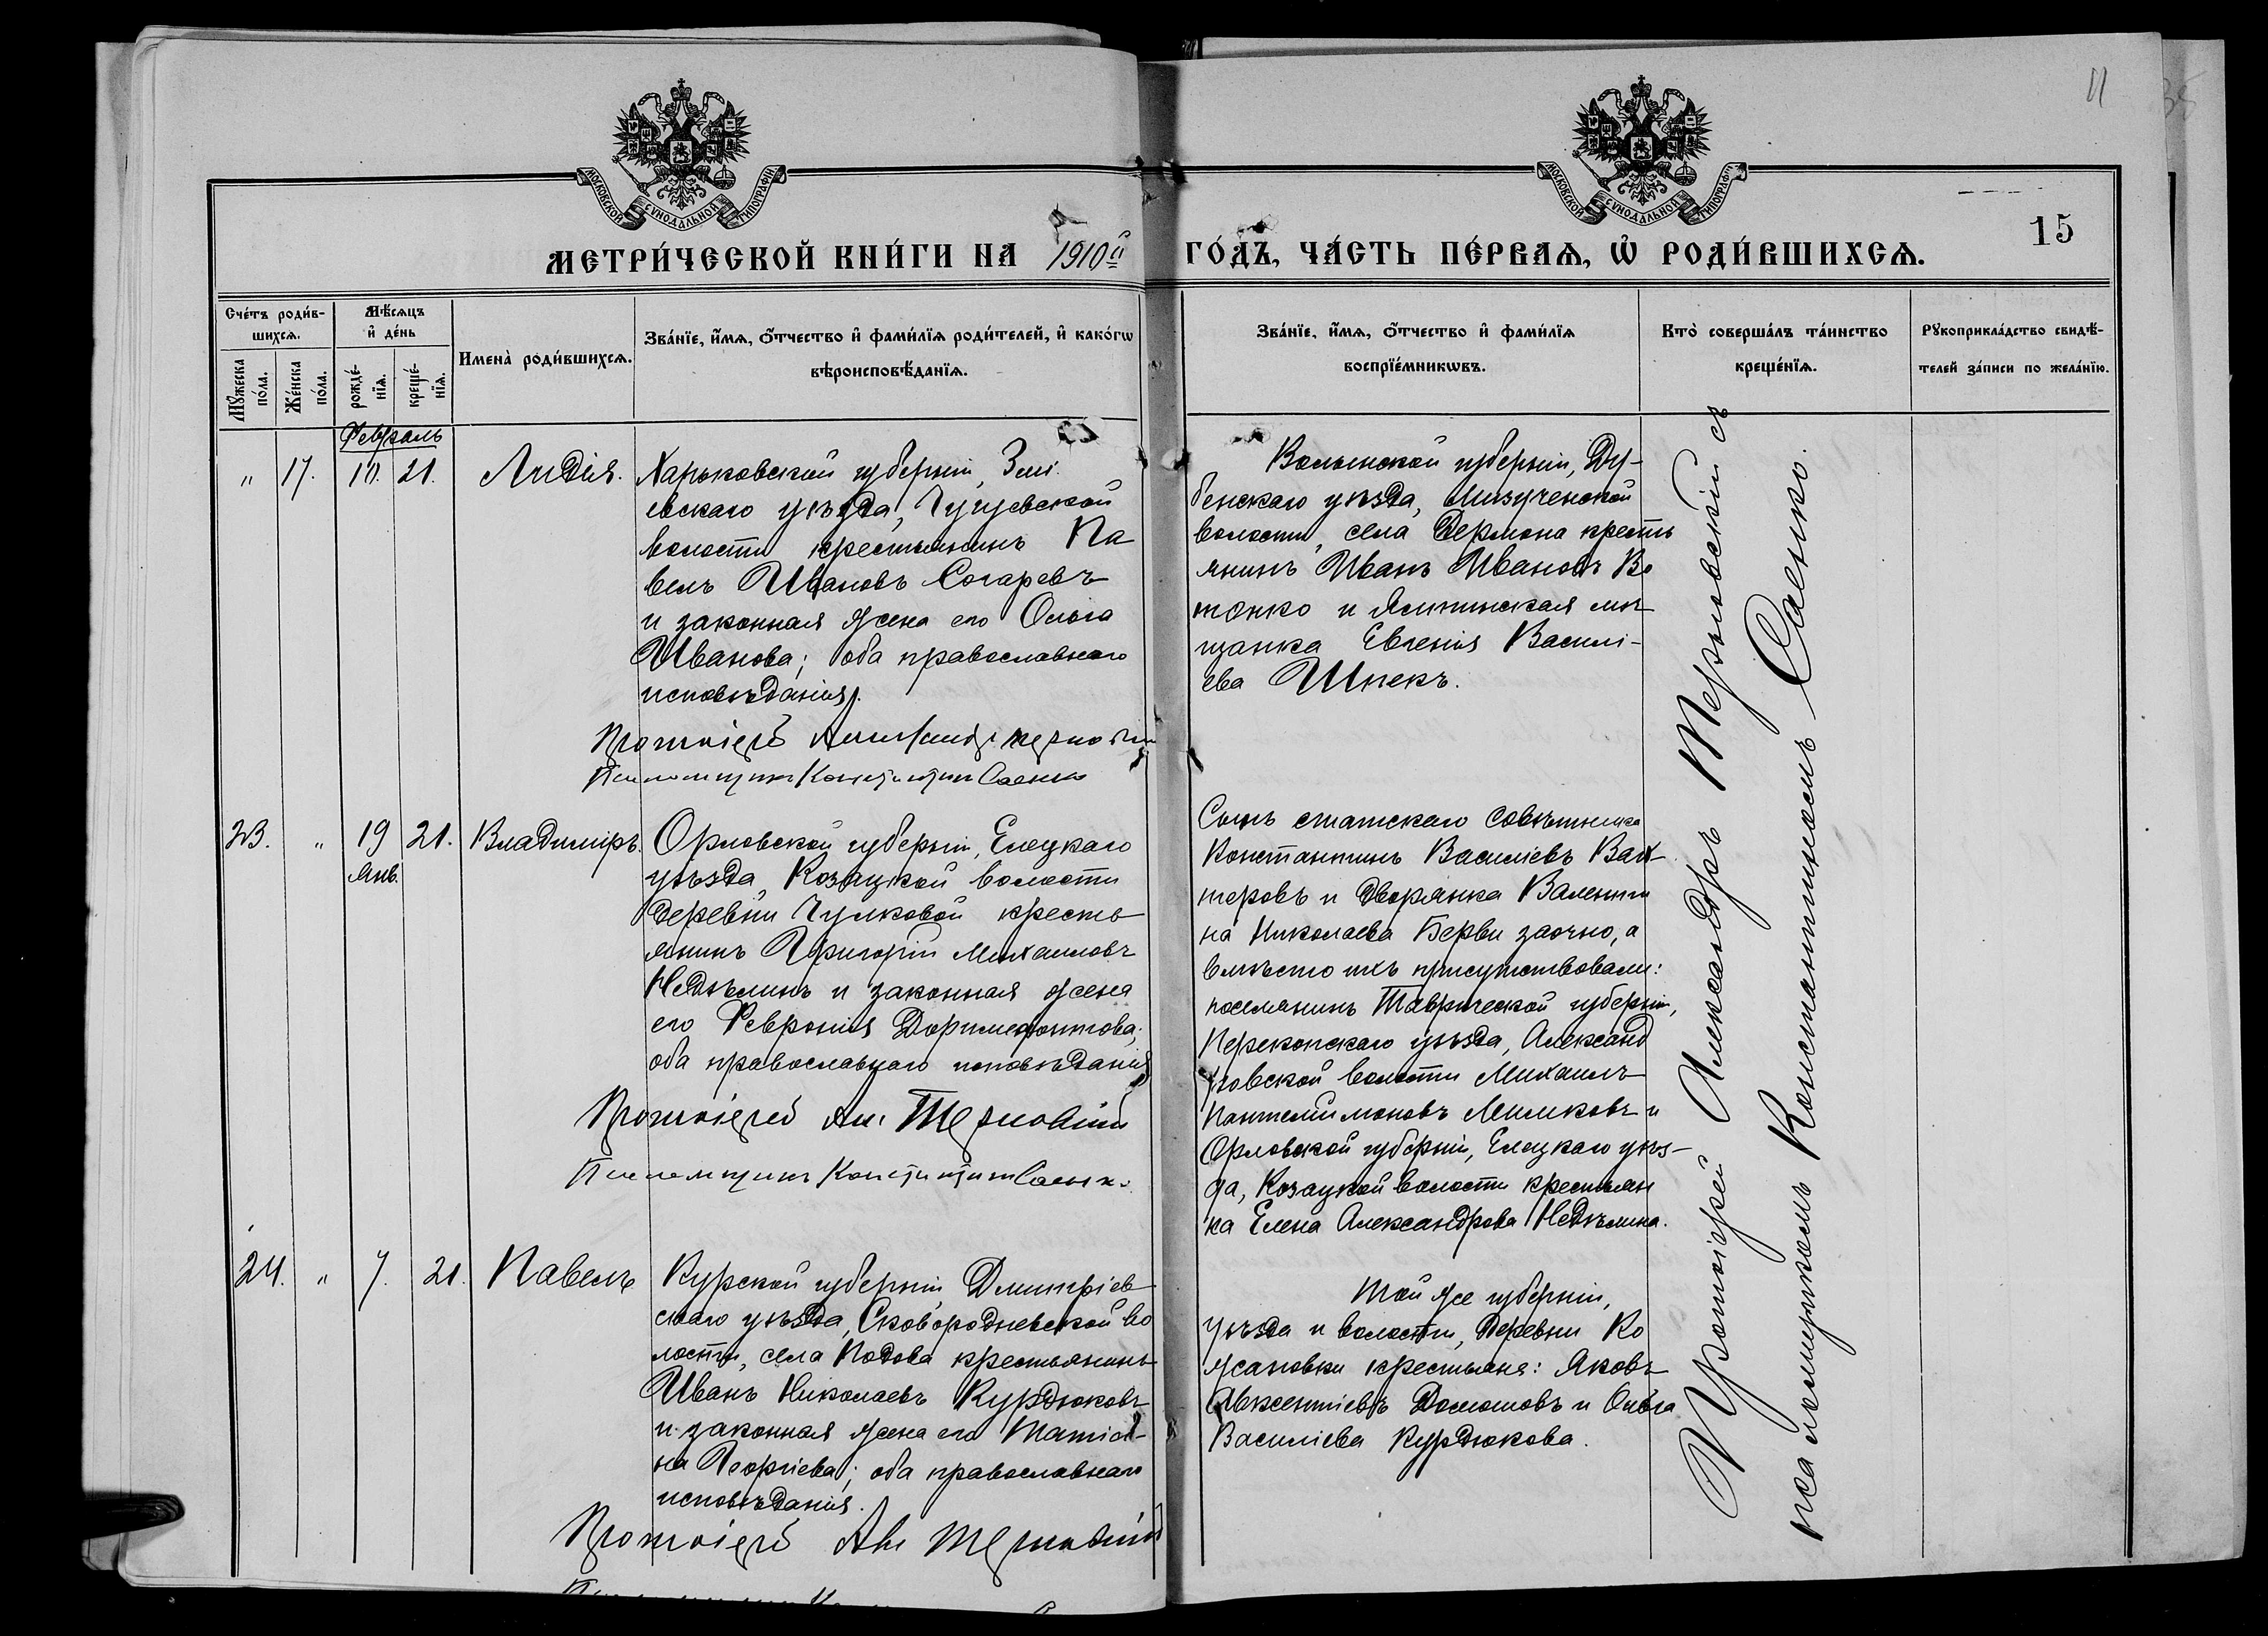 11
МОСКОВСКОЙ СѴНОДАЛЬНОЙ ТИПОГРАФІИ
МОСКОВСКОЙ СѴНОДАЛЬНОЙ ТИПОГРАФІИ
15
МЕТРИ́ЧЕСКОЙ КНИ́ГИ НА 1910й ГО́ДЪ, ЧА́СТЬ ПЕ́РВАѦ, Ѡ҆ РОДИ́ВШИХСѦ.
Сче́тъ роди́в-
шихсѧ.
Мꙋ́жеска по́ла.
Же́нска по́ла.
Мѣ́сѧцъ
и҆ де́нь
рожде́-
нїѧ.
креще́-
нїѧ.
Имена̀ роди́вшихсѧ.
Зва́нїе, и҆́мѧ, о҆́тчество и҆ фами́лїѧ роди́телей, и҆ како́гѡ
вѣроисповѣ́данїѧ.
Зва́нїе, и҆́мѧ, о҆́тчество и҆ фами́лїѧ
воспрїе́мникѡвъ.
Кто̀ соверша́лъ та́инство
креще́нїѧ.
Рꙋкоприкла́дство свидѣ́-
телей за́писи по жела́нїю.
Февраль
" 17. 10. 21. Лидія.
Харьковской губерніи, Змі-
евскаго уѣзда, Чугуевской
волости крестьянинъ Па
велъ Ивановъ Согаревъ
и законная жена его Ольга
Иванова; оба православнаго
исповѣданія.
Протоіерей Александръ Терновскій
Псаломщикъ Константинъ Саенко
Волынской губерніи, Ду-
бенскаго уѣзда, Мизученской
волости, села Дермона кресть
янинъ Иванъ Ивановъ Во
тонко и Ялтинская мѣ
щанка Евгенія Василі-
ева Шпекъ.
23. " 19 21. Владиміръ.
Янв.
Орловской губерніи, Елецкаго
уѣзда, Козацкой волости
деревни Чулковой кресть
янинъ Григорій Михаиловъ
Недѣлинъ и законная жена
его Февронія Доримедонтова;
оба православнаго исповѣданія
Протоіерей Ал. Терновскій
Псаломщикъ Константинъ Саенко
Сынъ статскаго совѣтника
Константинъ Василіевъ Вах-
теровъ и дворянка Валенти
на Николаева Берви заочно, а
вмѣсто ихъ присутствовали:
поселянинъ Таврической губерніи,
Перекопскаго уѣзда, Александ
ровской волости Михаилъ
Пантелеимоновъ Милковъ и
Орловской губерніи, Елецкаго уѣз-
да, Козацкой волости крестьян
ка Елена Александрова Недѣлина.
24. " 7. 21. Павелъ
Курской губерніи, Дмитріев
скаго уѣзда, Сковородневской во
лости, села Подова крестьянинъ
Иванъ Николаевъ Курдюковъ
и законная жена его Татіа-
на Георгіева; оба православнаго
исповѣданія.
Протоіерей Ал. Терновскій
Той же губерніи,
уѣзда и волости, деревни Ко
жановки крестьяне: Яковъ
Авксентіевъ Долотовъ и Ольга
Василіева Курдюкова.
Протоіерей Александръ Терновскій съ
псаломщикомъ Константиномъ Саенко.